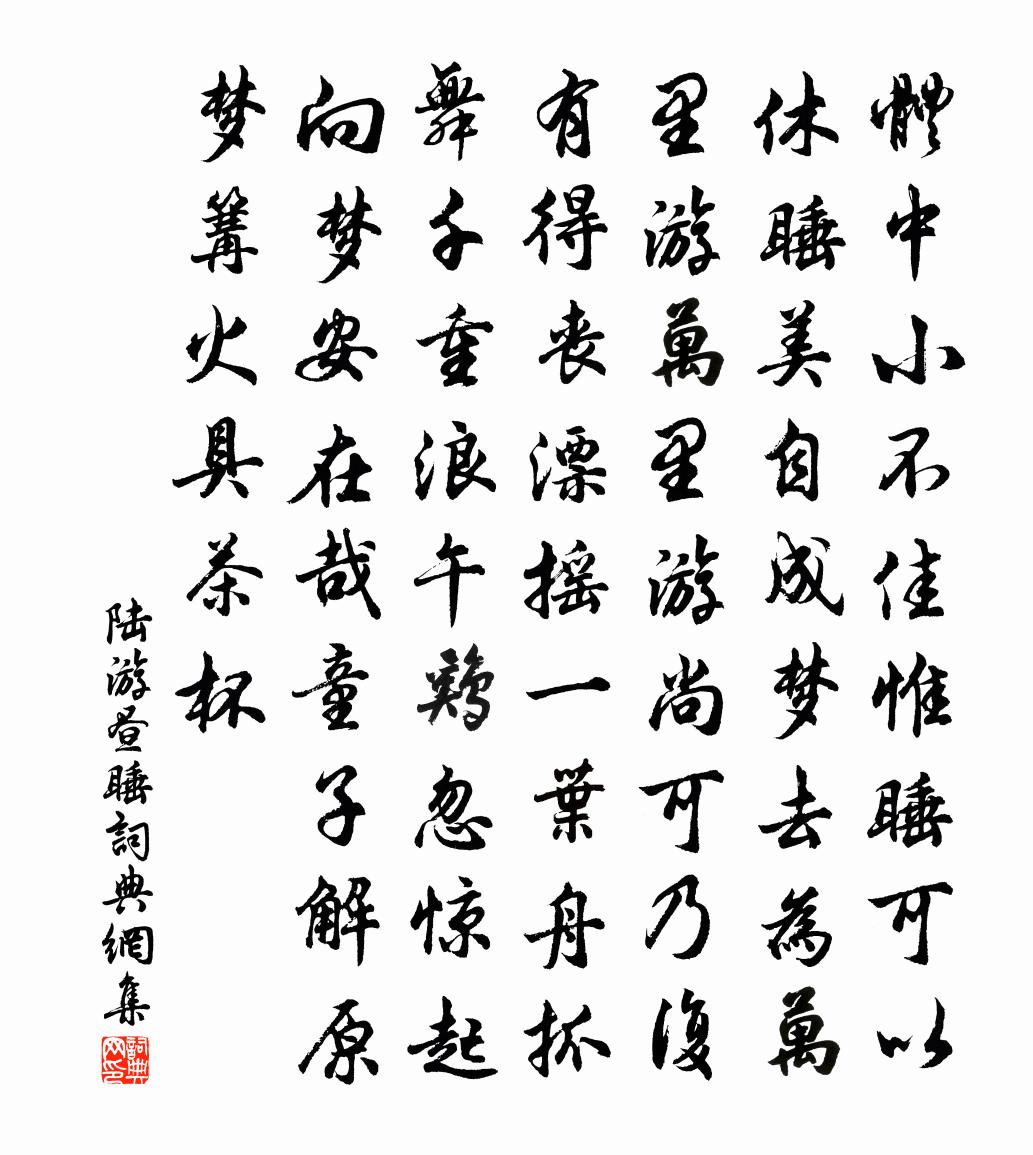 體中小不佳惟睡可以
休睡美自成梦去為萬
里游萬里游尚可乃復
有得丧漂摇一葉舟抓
舞千重浪午鷄忽惊起
向梦安在哉童子解原
梦篝火具茶杯
陆游昼睡詞典網集
詞典网印